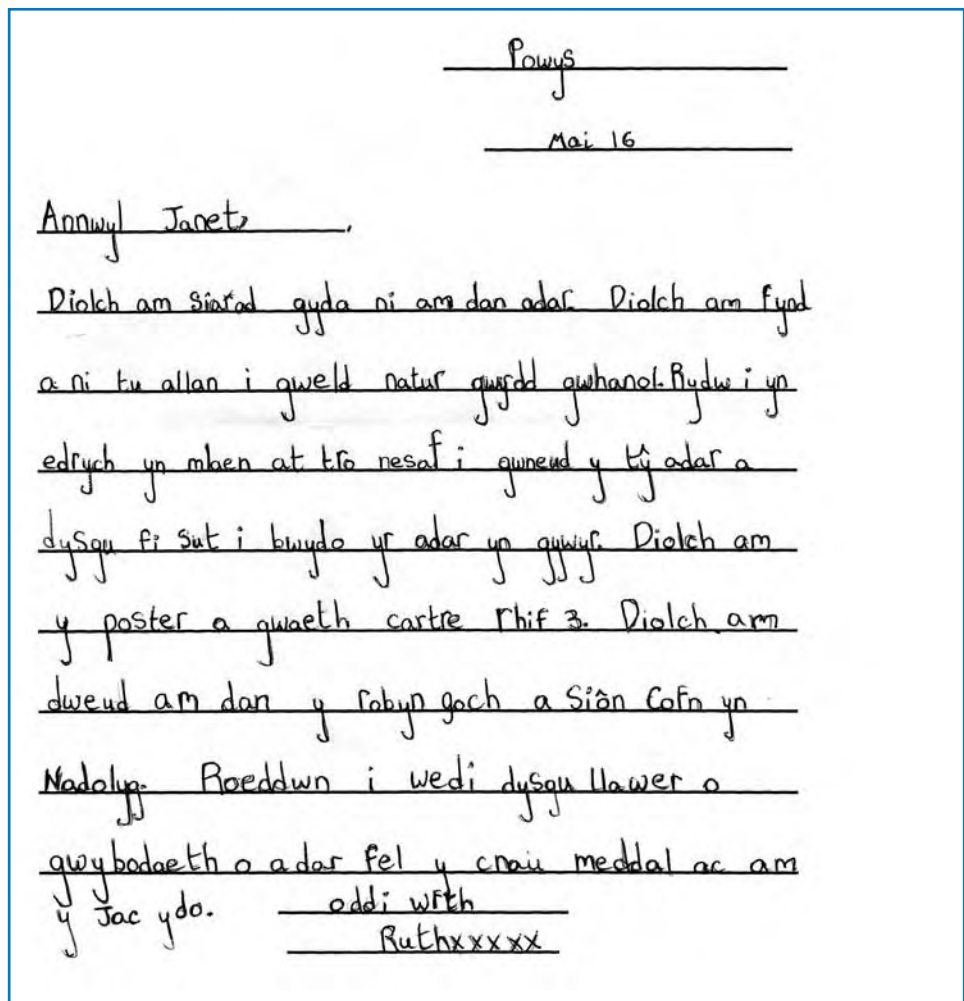 Powys
Mai 16
Annwyl Janet,
Diolch am siarad gyda ni am dan adar. Diolch am fynd
a ni tu allan i gweld natur gwyrdd gwhanol. Rydw i yn
edrych yn mlaen at tro nesaf i gwneud y tŷ adar a
dysgu fi sut i bwydo yr adar yn gywyr. Diolch am
y poster a gwaeth cartre rhif 3. Diolch am
dweud am dan y robyn goch a Siôn Corn yn
Nadolyg. Roeddwn i wedi dysgu llawer o
gwybodaeth o adar fel y cnau meddal ac am
y Jac y do.
oddi wrth
Ruthxxxxx